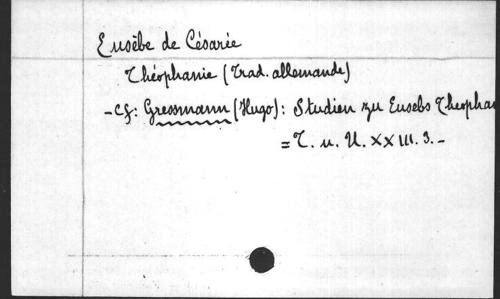 Eusèbe de Césarée
Théophanie (Trad. allemande)
- cf: Gressmann (Hugo): Studien zu Eusebs Theophan
= T. u. U. XXIII. 3. -